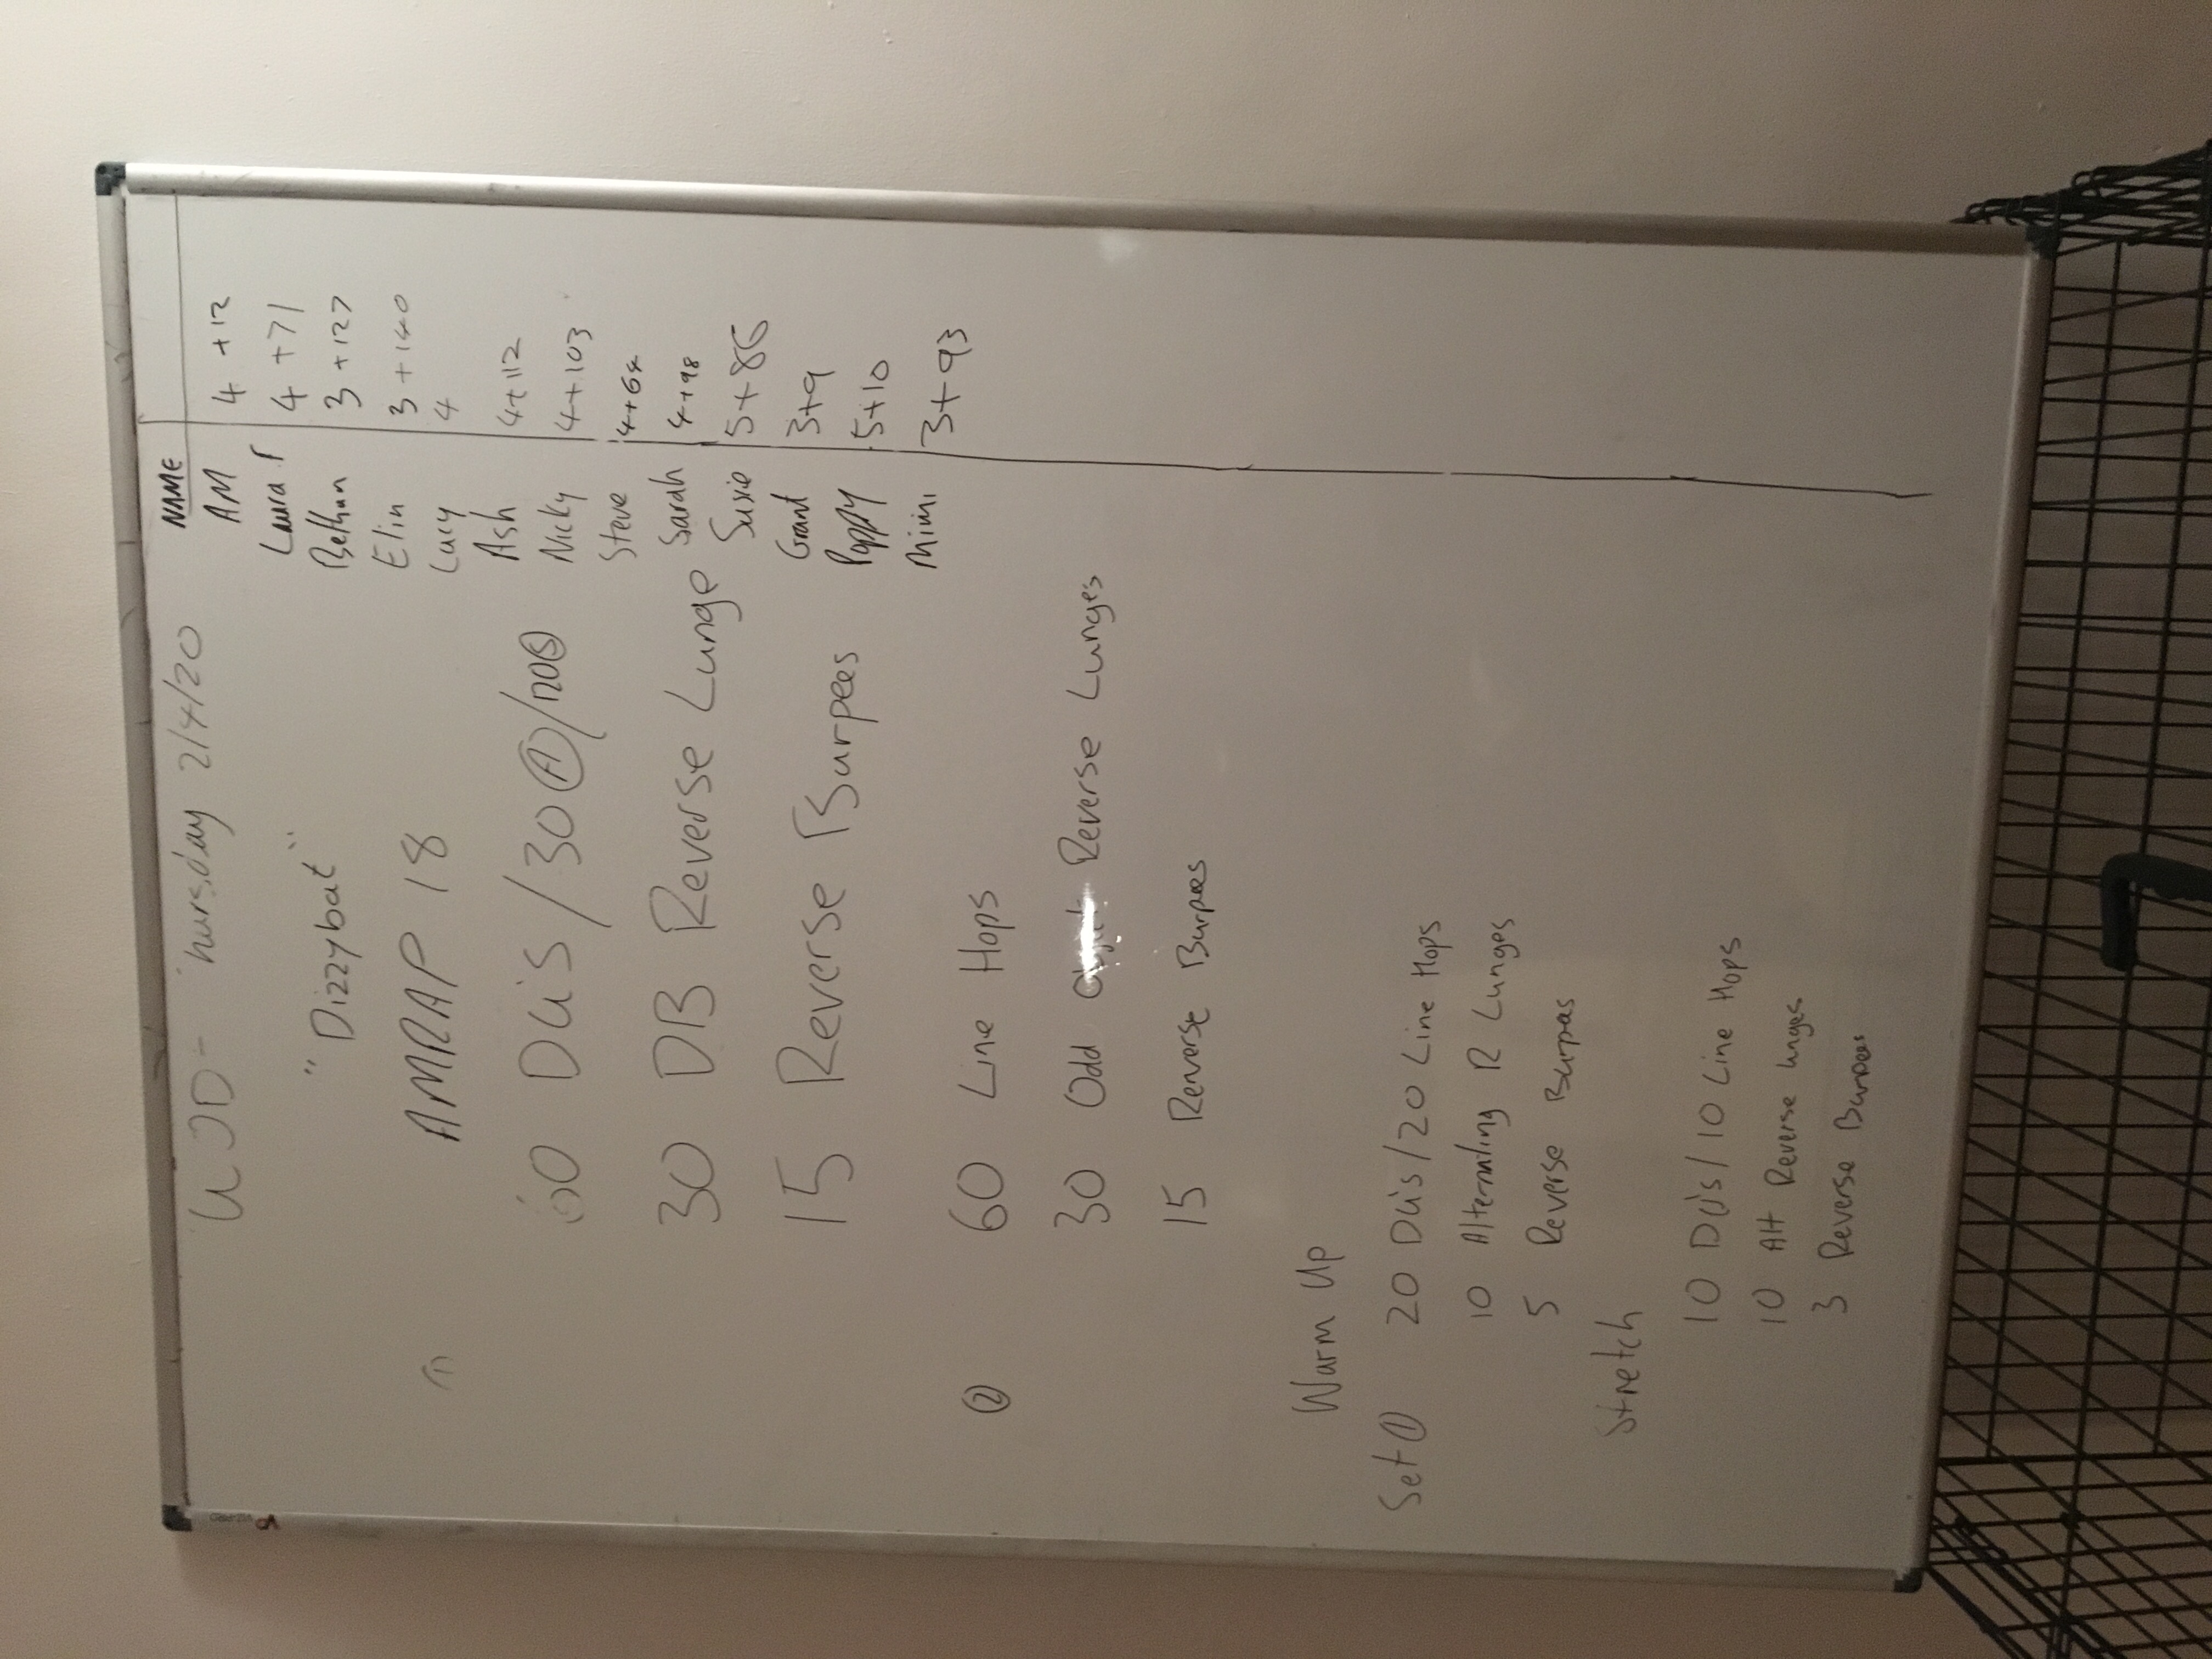 WOD - Thursday 2/4/20
"Dizzybat"
① AMRAP 18
60 DU's / 30 Ⓐ / 120 Ⓢ
30 DB Reverse Lunge
15 Reverse Burpees
② 60 Line Hops
30 Odd Reverse Lunges
15 Reverse Burpees
Warm Up
Set ① 20 DU's / 20 Line Hops
10 Alternating R Lunges
5 Reverse Burpees
Stretch
10 DU's / 10 Line Hops
10 Alt Reverse lunges
3 Reverse Burpees
NAME
AM 4 + 12
Laura P 4 + 71
Bethan 3 + 127
Elin 3 + 140
Lucy 4
Ash 4 + 112
Nicky 4 + 103
Steve 4 + 64
Sarah 4 + 98
Susie 5 + 86
Grant 3 + 9
Poppy 5 + 10
Mimi 3 + 93